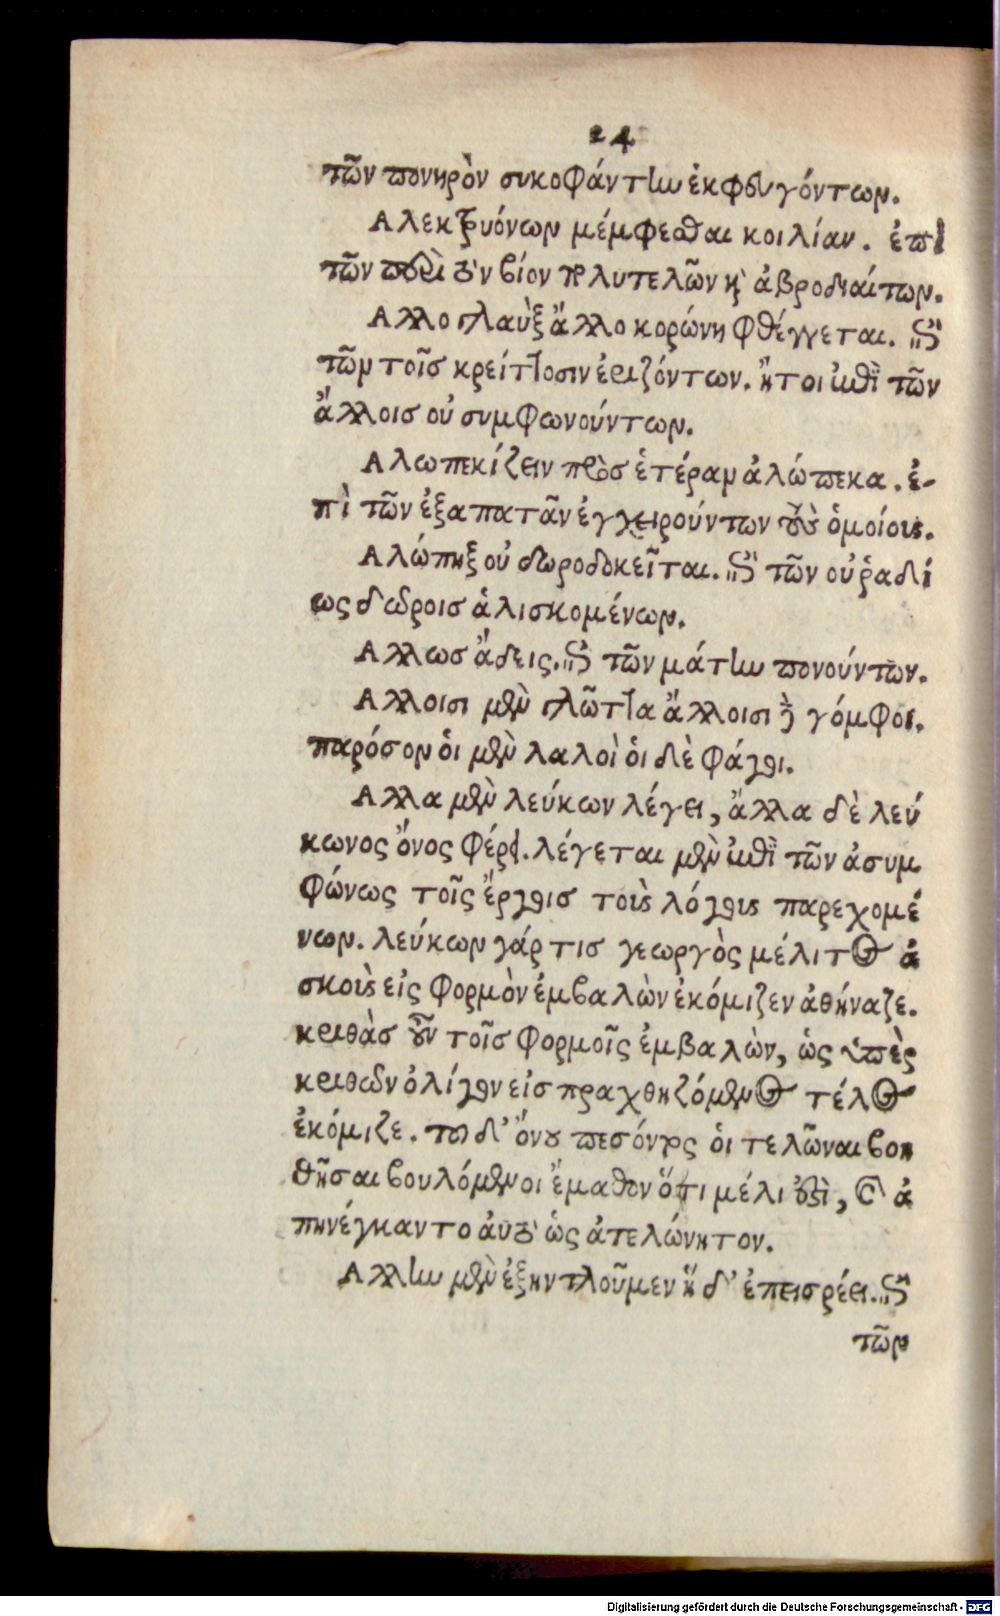 24
τῶν πονηρὸν συκοφάντην ἐκφευγόντων.
Αλεκτρυόνων μέμφεσθαι κοιλίαν. ἐπὶ
τῶν παρὰ τὸν βίον πολυτελῶν κὶ ἁβροδιαίτων.
Αλλο γλαὺξ ἄλλο κορώνη φθέγγεται. ἐπὶ
τῶν τοῖσ κρείττοσιν ἐριζόντων. ἤτοι ἐπὶ τῶν
ἄλλοισ οὐ συμφωνούντων.
Αλωπεκίζειν πρὸσ ἑτέραν ἀλώπεκα. ἐ-
πὶ τῶν ἐξαπατᾶν ἐγχειρούντων τοὺς ὁμοίους.
Αλώπηξ οὐ δωροδοκεῖται. ἐπὶ τῶν οὐ ῥαδί
ως δώροισ ἁλισκομένων.
Αλλωσ ἄδεις. ἐπὶ τῶν μάτην πονούντων.
Αλλοισι μὲν γλῶττα ἄλλοισι δὲ γόμφοι.
παρόσον ὁι μὲν λαλοὶ ὁι δὲ φάγοι.
Αλλα μὲν λεύκων λέγει, ἄλλα δὲ λεύ
κωνος ὄνος φέρει. λέγεται μὲν ἐπὶ τῶν ἀσυμ
φώνως τοῖς ἔργοισ τοὺς λόγους παρεχομέ
νων. λεύκων γάρ τισ γεωργὸς μέλιτος ἀ
σκοὺς εἰς φορμὸν ἐμβαλὼν ἐκόμιζεν ἀθήναζε.
κριθὰσ οὖν τοῖσ φορμοῖς ἐμβαλὼν, ὡς ὑπὲρ
κριθῶν ὀλίγον εἰσπραχθησόμενος τέλος
ἐκόμιζε. τοῦ δ' ὄνου πεσόντος ὁι τελῶναι βοη
θῆσαι βουλόμενοι ἔμαθον ὅτι μέλι ἐστὶ, καὶ ἀ
πηνέγκαντο ἀυτὸ ὡς ἀτελώνητον.
Αλλην μὲν ἐξηντλοῦμεν ἥ δ' ἐπεισρέει. ἐπὶ
τῶν
Digitalisierung gefördert durch die Deutsche Forschungsgemeinschaft - DFG